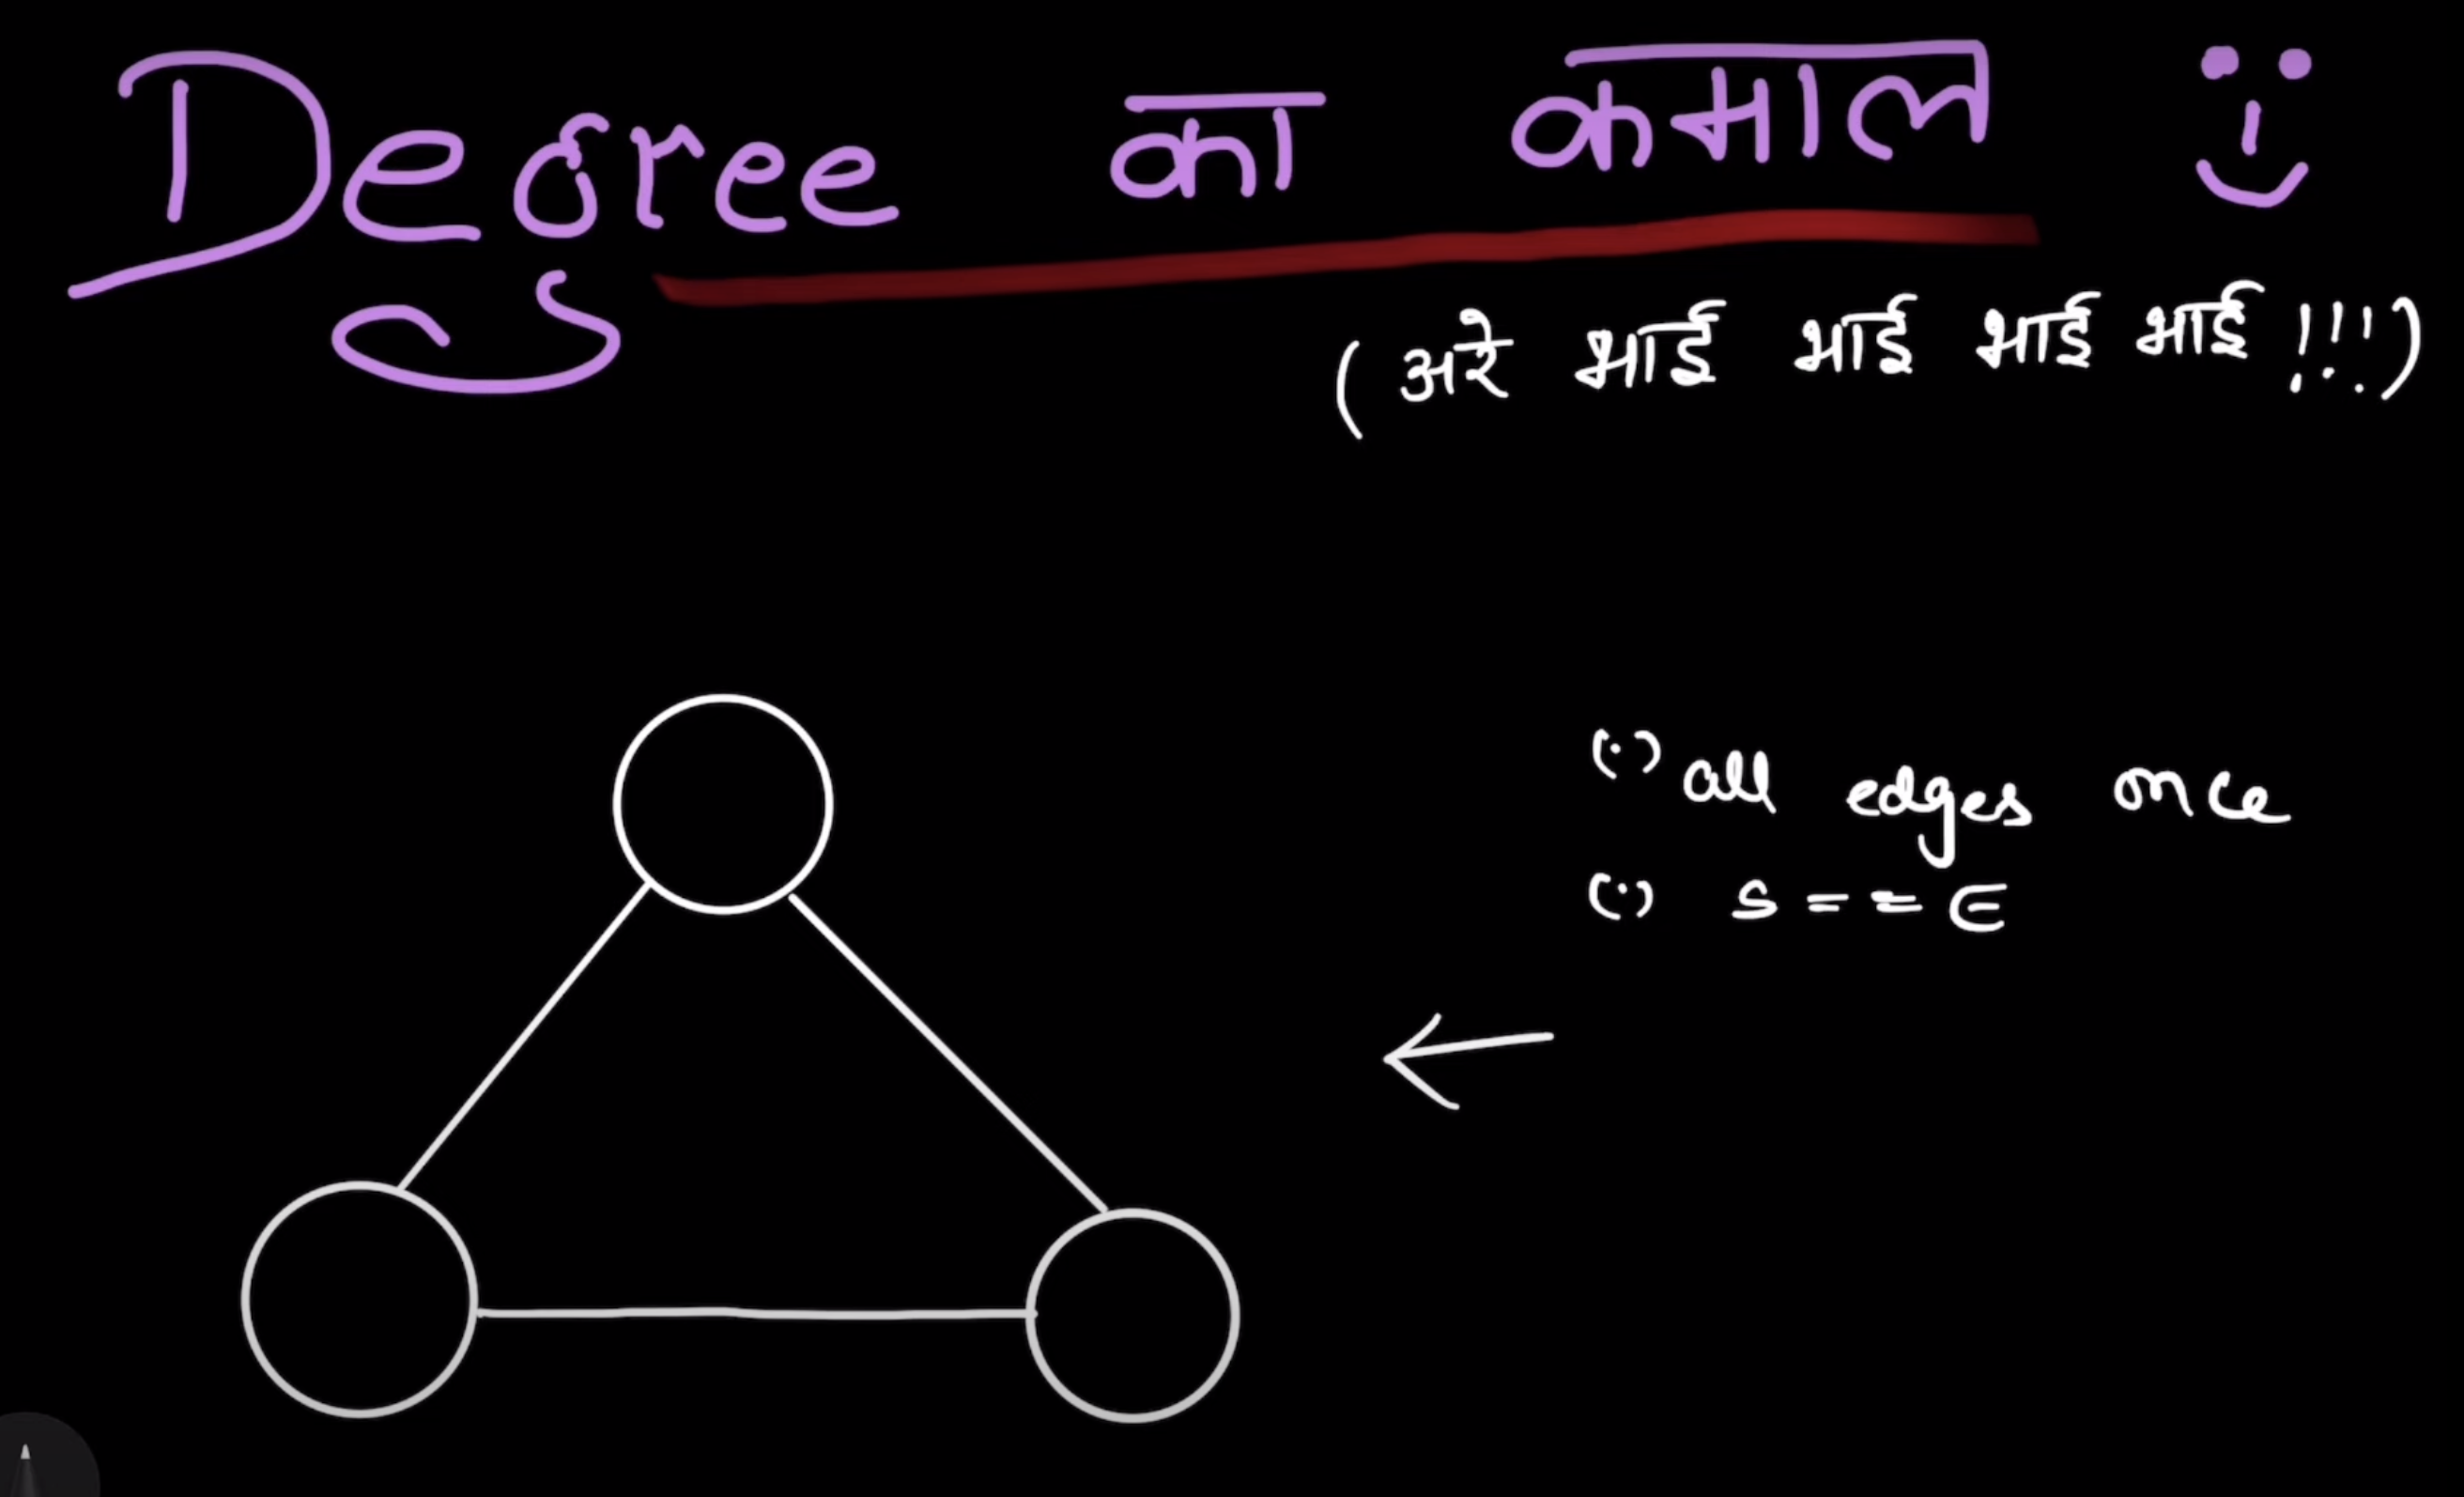 Degree का कमाल
(अरे भाई भाई भाई भाई !!!)
(·) all edges once
(·) s == E